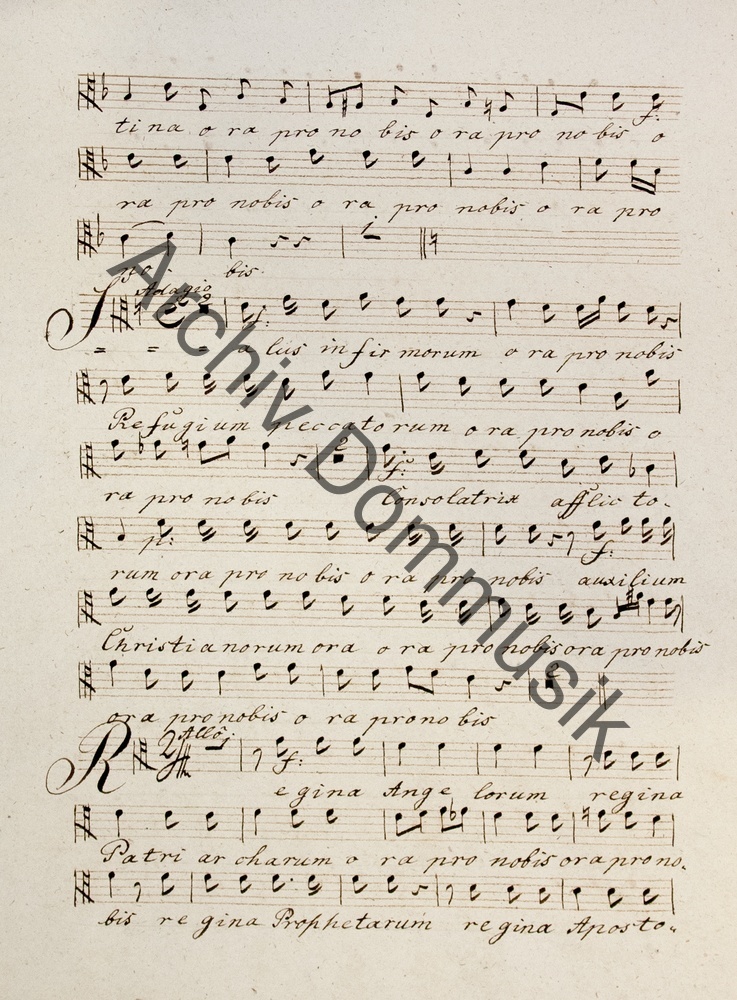 tina o ra pro no bis o ra pro no bis o
f:
ra pro nobis o ra pro nobis o ra pro
bis.
Adagio
S = = = a lus in fir morum o ra pro nobis
f:
Refugium peccatorum o ra pro nobis o
2
ra pro no bis Consolatrix afflic to-
f:
p: f:
rum ora pro no bis o ra pro nobis auxilium
Christianorum ora o ra pro nobis ora pro nobis
ora pro nobis o ra pro no bis
Allo
R egina Ange lorum regina
f:
Patri ar charum o ra pro nobis ora pro no-
bis re gina Prophetarum regina Aposto-
Archiv Dommusik